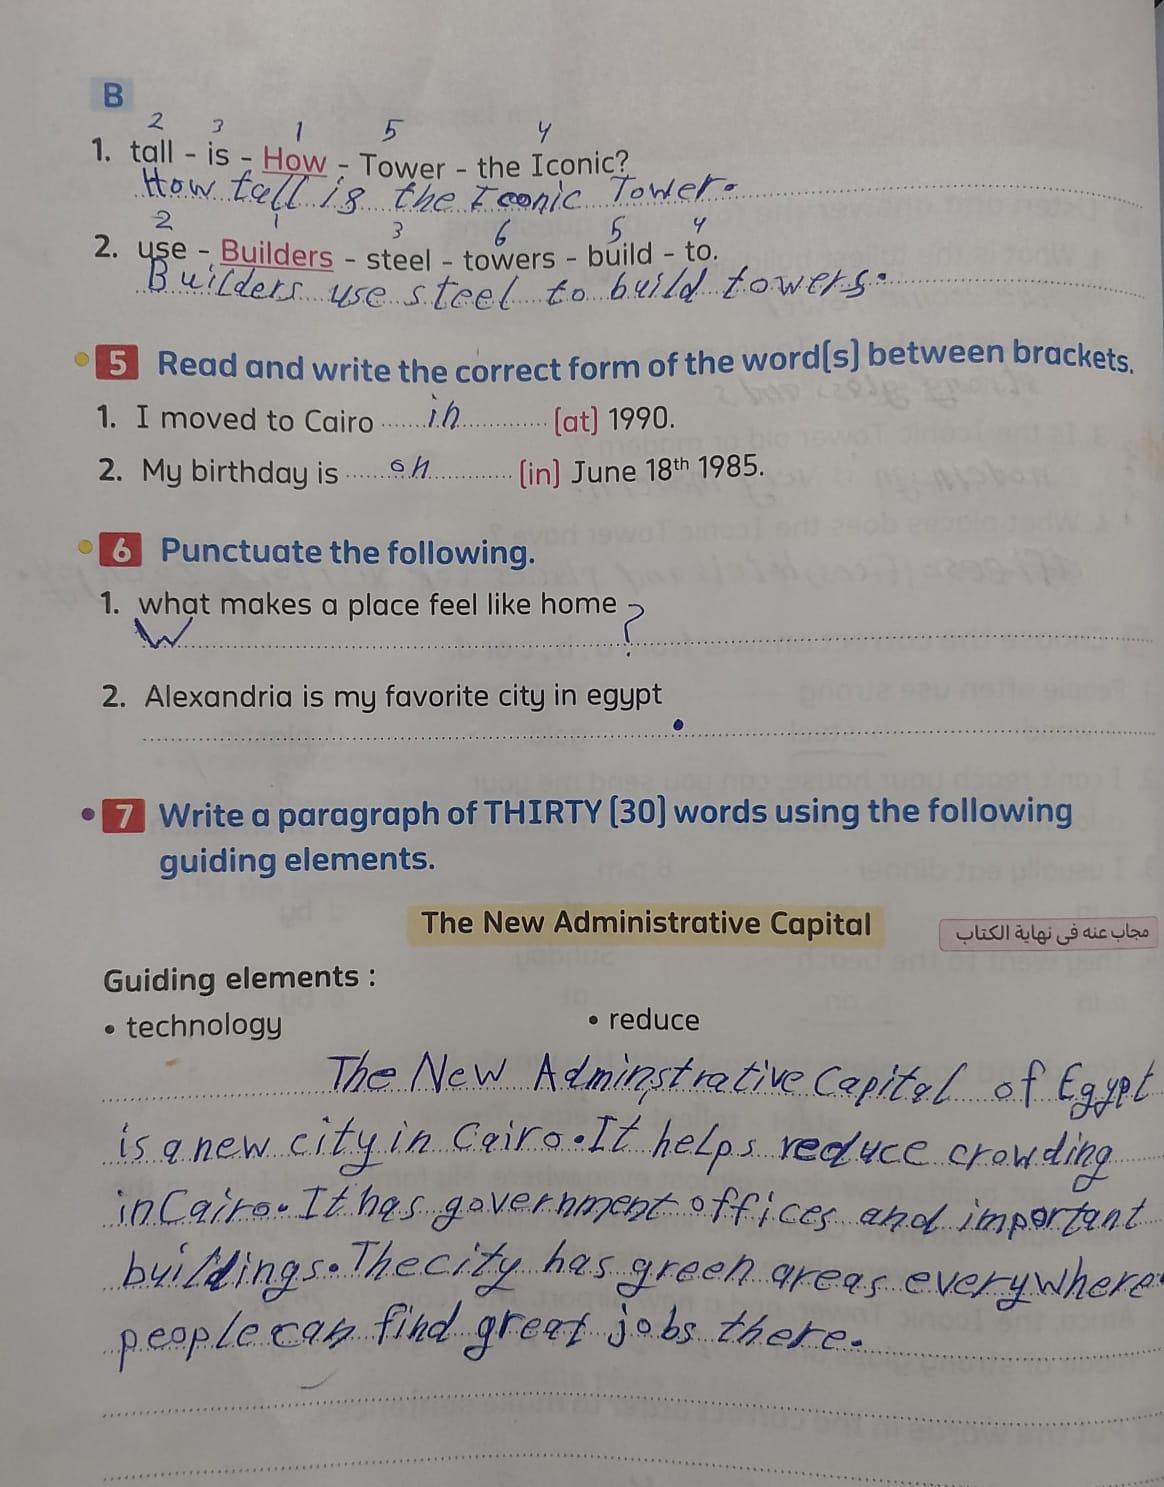 B
2 3 1 5 4
1. tall - is - How - Tower - the Iconic?
How tall is the Iconic Tower.
2 1 3 6 5 4
2. use - Builders - steel - towers - build - to.
Builders use steel to build towers.
5 Read and write the correct form of the word(s) between brackets.
1. I moved to Cairo ...... in ............ (at) 1990.
2. My birthday is ...... on ............ (in) June 18th 1985.
6 Punctuate the following.
1. what makes a place feel like home ?
W
2. Alexandria is my favorite city in egypt
.
7 Write a paragraph of THIRTY (30) words using the following
guiding elements.
The New Administrative Capital
مجاب عنه فى نهاية الكتاب
Guiding elements :
• technology • reduce
The New Adminstrative Capital of Egypt
is a new city in Cairo. It helps reduce crowding
in Cairo. It has government offices and important
buildings. The city has green areas everywhere.
people can find great jobs there.